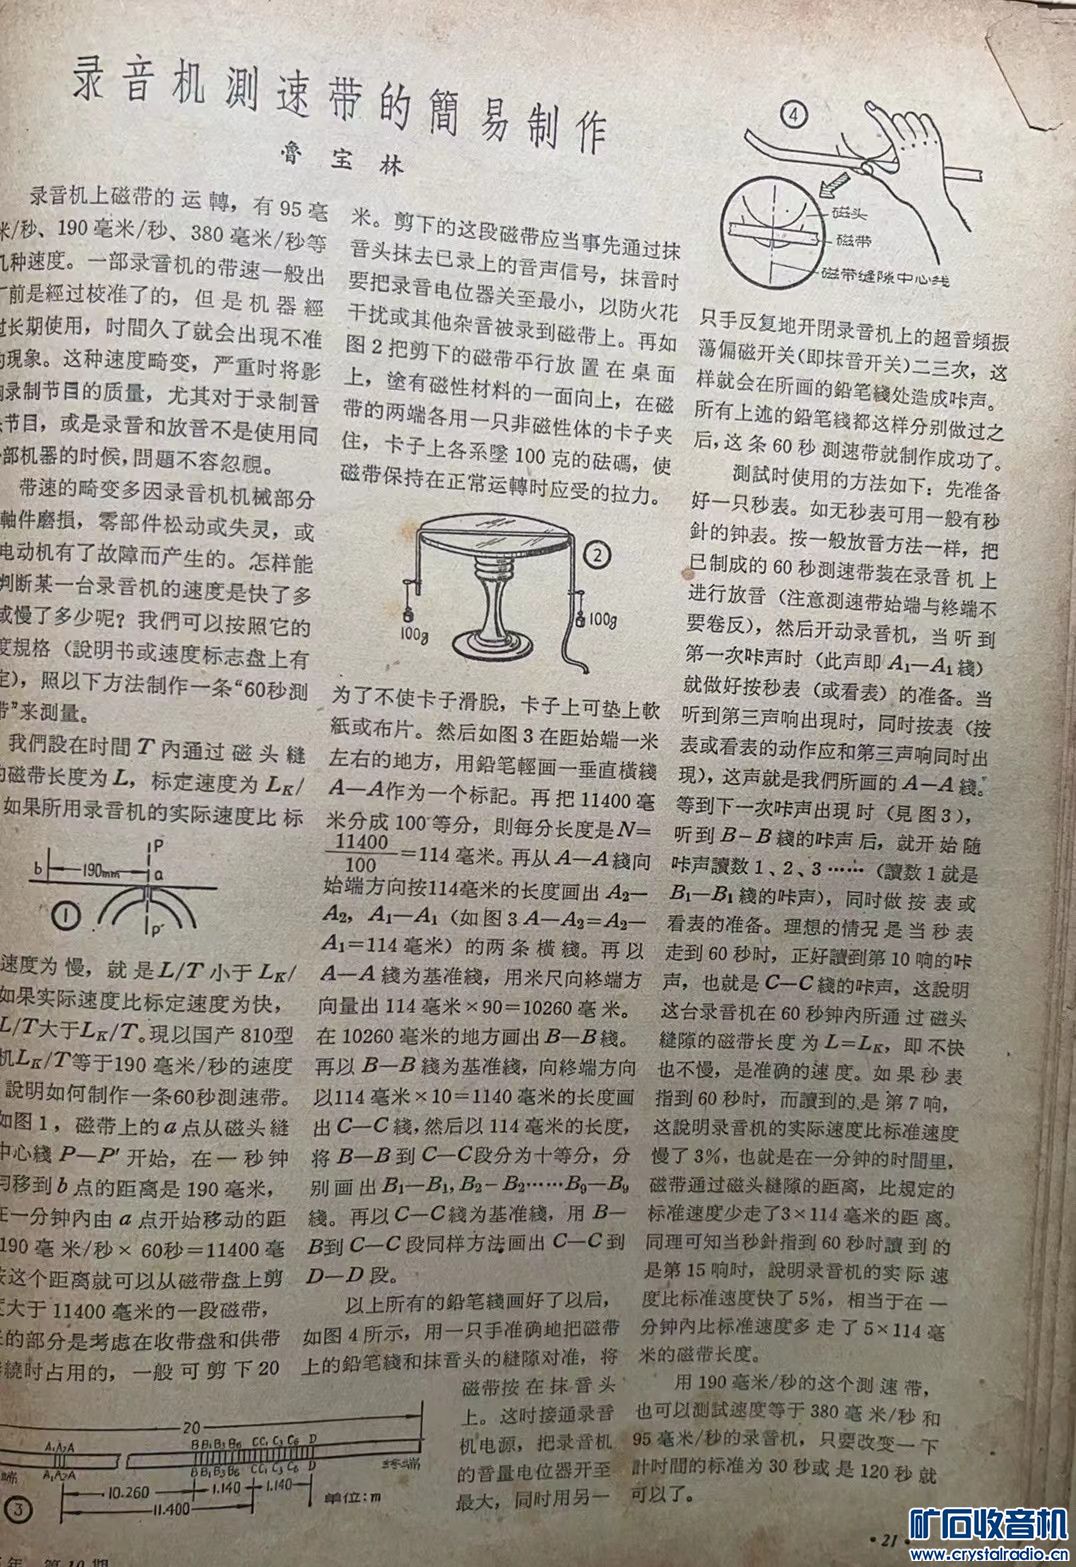 录音机測速带的簡易制作
鲁宝林
录音机上磁带的运轉，有95毫
米/秒、190毫米/秒、380毫米/秒等
几种速度。一部录音机的带速一般出
前是經过校准了的，但是机器經
过长期使用，时間久了就会出現不准
的現象。这种速度畸变，严重时将影
响录制节目的质量，尤其对于录制音
节目，或是录音和放音不是使用同
部机器的时候，問題不容忽視。
带速的畸变多因录音机机械部分
軸件磨損，零部件松动或失灵，或
电动机有了故障而产生的。怎样能
判断某一台录音机的速度是快了多
或慢了多少呢？我們可以按照它的
度規格（說明书或速度标志盘上有
定），照以下方法制作一条“60秒測
带”来測量。
我們設在时間T內通过磁头縫
的磁带长度为L，标定速度为LK/
如果所用录音机的实际速度比标
P
b
190mm
a
①
P′
速度为慢，就是L/T小于LK/
如果实际速度比标定速度为快，
L/T大于LK/T。現以国产810型
机LK/T等于190毫米/秒的速度
說明如何制作一条60秒測速带。
如图1，磁带上的a点从磁头縫
中心綫P—P′开始，在一秒钟
移到b点的距离是190毫米，
在一分钟內由a点开始移动的距
190毫米/秒×60秒=11400毫
按这个距离就可以从磁带盘上剪
大于11400毫米的一段磁带，
的部分是考虑在收带盘和供带
繞时占用的，一般可剪下20
米。剪下的这段磁带应当事先通过抹
音头抹去已录上的音声信号，抹音时
要把录音电位器关至最小，以防火花
干扰或其他杂音被录到磁带上。再如
图2把剪下的磁带平行放置在桌面
上，塗有磁性材料的一面向上，在磁
带的两端各用一只非磁性体的卡子夹
住，卡子上各系墜100克的砝碼，使
磁带保持在正常运轉时应受的拉力。
②
100g
100g
为了不使卡子滑脫，卡子上可垫上軟
紙或布片。然后如图3在距始端一米
左右的地方，用鉛笔輕画一垂直橫綫
A—A作为一个标記。再把11400毫
米分成100等分，則每分长度是N=
11400/100=114毫米。再从A—A綫向
始端方向按114毫米的长度画出A2—
A2，A1—A1（如图3 A—A2=A2—
A1=114毫米）的两条橫綫。再以
A—A綫为基准綫，用米尺向終端方
向量出114毫米×90=10260毫米。
在10260毫米的地方画出B—B綫。
再以B—B綫为基准綫，向終端方向
以114毫米×10=1140毫米的长度画
出C—C綫，然后以114毫米的长度，
将B—B到C—C段分为十等分，分
別画出B1—B1，B2—B2……B9—B9
綫。再以C—C綫为基准綫，用B—
B到C—C段同样方法画出C—C到
D—D段。
以上所有的鉛笔綫画好了以后，
如图4所示，用一只手准确地把磁带
上的鉛笔綫和抹音头的縫隙对准，将
磁带按在抹音头
上。这时接通录音
机电源，把录音机
的音量电位器开至
最大，同时用另一
20
A1A2A
B B1 B3 B6
C C1 C3 C6 D
A1A2A
B B1 B3 B6
C C1 C3 C6 D
端
終端
10.260
1.140
1.140
单位：m
11.400
③
④
磁头
磁带
磁带缝隙中心线
只手反复地开閉录音机上的超音頻振
蕩偏磁开关（即抹音开关）二三次，这
样就会在所画的鉛笔綫处造成咔声。
所有上述的鉛笔綫都这样分别做过之
后，这条60秒測速带就制作成功了。
測試时使用的方法如下：先准备
好一只秒表。如无秒表可用一般有秒
針的钟表。按一般放音方法一样，把
已制成的60秒測速带装在录音机上
进行放音（注意測速带始端与終端不
要卷反），然后开动录音机，当听到
第一次咔声时（此声即A1—A1綫）
就做好按秒表（或看表）的准备。当
听到第三声响出現时，同时按表（按
表或看表的动作应和第三声响同时出
現），这声就是我們所画的A—A綫。
等到下一次咔声出現时（見图3），
听到B—B綫的咔声后，就开始随
咔声讀数1、2、3……（讀数1就是
B1—B1綫的咔声），同时做按表或
看表的准备。理想的情况是当秒表
走到60秒时，正好讀到第10响的咔
声，也就是C—C綫的咔声，这說明
这台录音机在60秒钟內所通过磁头
縫隙的磁带长度为L=LK，即不快
也不慢，是准确的速度。如果秒表
指到60秒时，而讀到的是第7响，
这說明录音机的实际速度比标准速度
慢了3%，也就是在一分钟的时間里，
磁带通过磁头縫隙的距离，比規定的
标准速度少走了3×114毫米的距离。
同理可知当秒針指到60秒时讀到的
是第15响时，說明录音机的实际速
度比标准速度快了5%，相当于在一
分钟內比标准速度多走了5×114毫
米的磁带长度。
用190毫米/秒的这个測速带，
也可以測試速度等于380毫米/秒和
95毫米/秒的录音机，只要改变一下
計时間的标准为30秒或是120秒就
可以了。
年 第10期
·21·
矿石收音机
www.crystalradio.cn